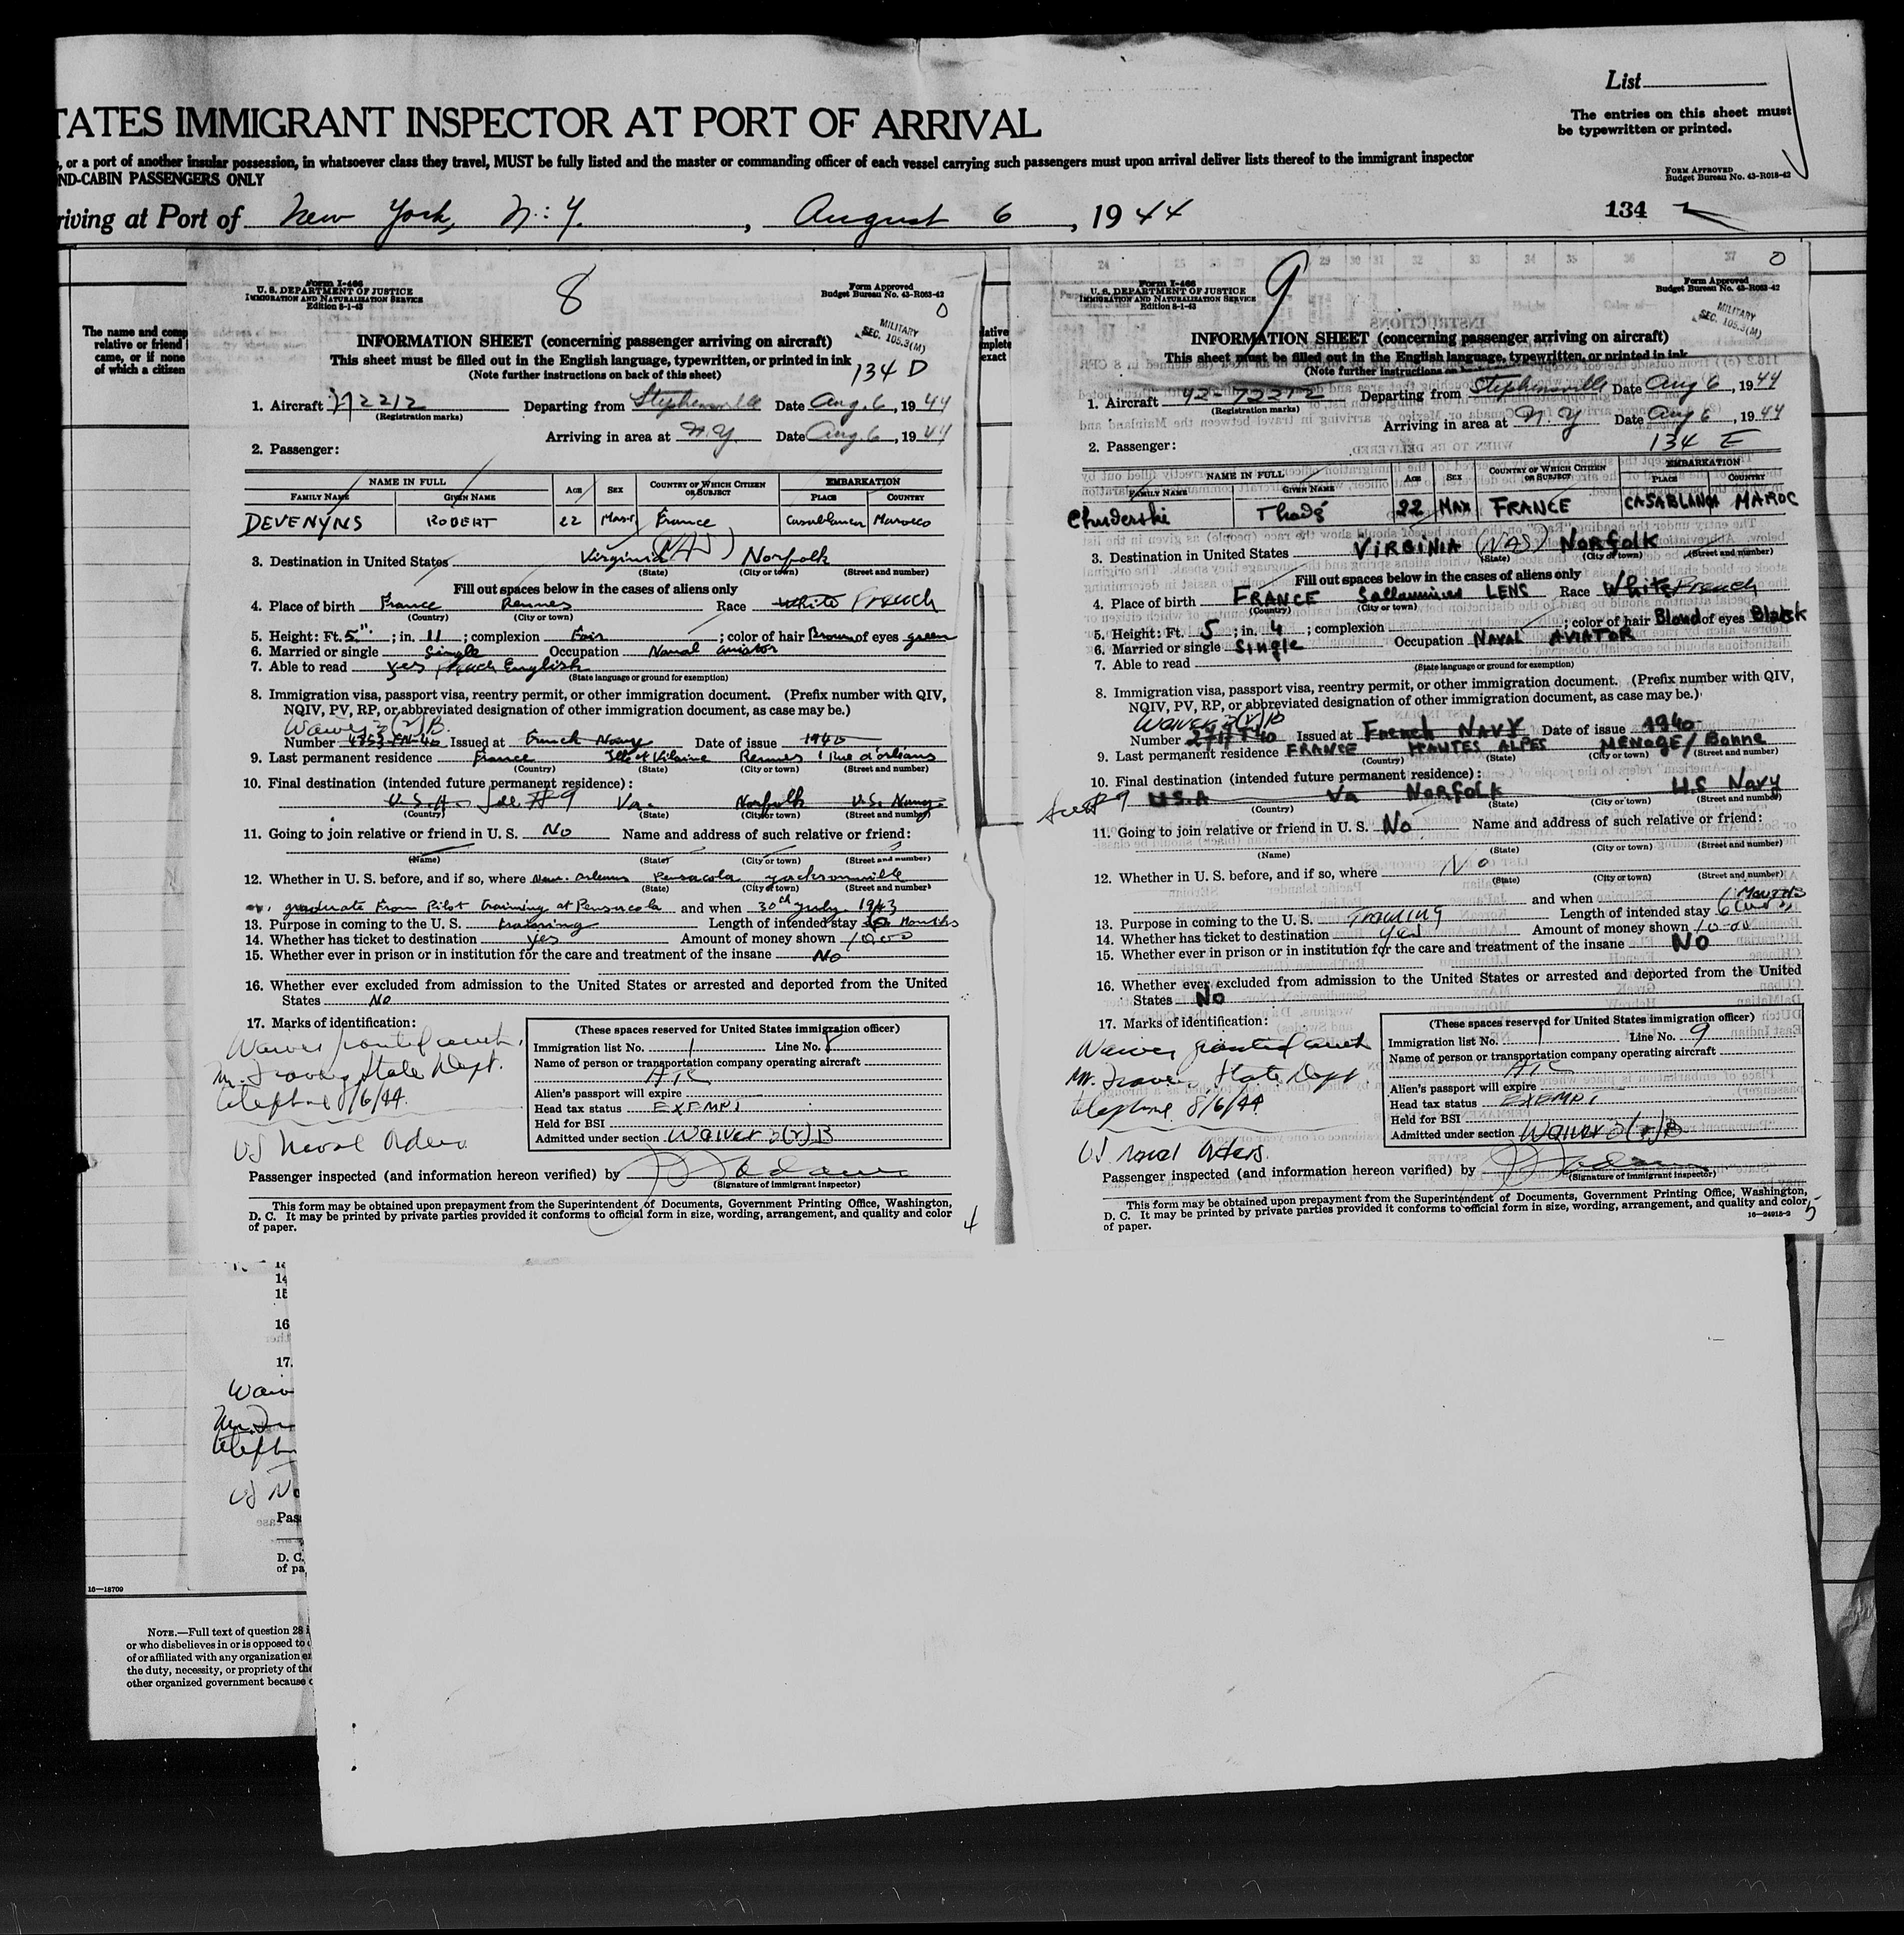 List
TATES IMMIGRANT INSPECTOR AT PORT OF ARRIVAL
The entries on this sheet must
be typewritten or printed.
, or a port of another insular possession, in whatsoever class they travel, MUST be fully listed and the master or commanding officer of each vessel carrying such passengers must upon arrival deliver lists thereof to the immigrant inspector
ND-CABIN PASSENGERS ONLY
FORM APPROVED
Budget Bureau No. 43-R018-42
riving at Port of New York, N.Y. , August 6 , 1944
134
The name and comp
relative or friend
came, or if none
of which a citizen
8
Form I-466
U. S. DEPARTMENT OF JUSTICE
IMMIGRATION AND NATURALIZATION SERVICE
Edition 8-1-43
Form Approved
Budget Bureau No. 43-R063-42
0
MILITARY
SEC. 105.3(M)
INFORMATION SHEET (concerning passenger arriving on aircraft)
This sheet must be filled out in the English language, typewritten, or printed in ink
(Note further instructions on back of this sheet)
134 D
1. Aircraft 72212 Departing from Stephenville Date Aug. 6, 1944
(Registration marks)
Arriving in area at N.Y. Date Aug. 6, 1944
2. Passenger:
NAME IN FULL AGE SEX COUNTRY OF WHICH CITIZEN OR SUBJECT EMBARKATION
FAMILY NAME GIVEN NAME PLACE COUNTRY
DEVENYNS ROBERT 22 Masc France Casablanca Morocco
3. Destination in United States Virginia (NAS) Norfolk
(State) (City or town) (Street and number)
Fill out spaces below in the cases of aliens only
4. Place of birth France Rennes Race White French
(Country) (City or town)
5. Height: Ft. 5 ; in. 11 ; complexion Fair ; color of hair Brown of eyes green
6. Married or single Single Occupation Naval aviator
7. Able to read yes French English
(State language or ground for exemption)
8. Immigration visa, passport visa, reentry permit, or other immigration document. (Prefix number with QIV,
NQIV, PV, RP, or abbreviated designation of other immigration document, as case may be.)
Waiver 3(2)B
Number Issued at French Navy Date of issue 1940
9. Last permanent residence France Ille et Vilaine Rennes 1 Rue d'orleans
(Country) (State) (City or town) (Street and number)
10. Final destination (intended future permanent residence):
U.S.A. See #9 Va. Norfolk U.S. Navy
(Country) (State) (City or town) (Street and number)
11. Going to join relative or friend in U. S. No Name and address of such relative or friend:
(Name) (State) (City or town) (Street and number)
12. Whether in U. S. before, and if so, where New. orleans Pensacola yacksonville
(State) (City or town) (Street and number)
graduate from Pilot training at Pensacola and when 30th July 1943
13. Purpose in coming to the U. S. training Length of intended stay 6 Months
14. Whether has ticket to destination yes Amount of money shown 10.00
15. Whether ever in prison or in institution for the care and treatment of the insane No
16. Whether ever excluded from admission to the United States or arrested and deported from the United
States No
17. Marks of identification:
Waiver granted auth.
Mr. Travers State Dept.
telephone 8/6/44.
US Naval Orders
(These spaces reserved for United States immigration officer)
Immigration list No. 1 Line No. 8
Name of person or transportation company operating aircraft
ATC
Alien's passport will expire
Head tax status EXEMPT
Held for BSI
Admitted under section Waiver 3(2)B
Passenger inspected (and information hereon verified) by
(Signature of immigrant inspector)
This form may be obtained upon prepayment from the Superintendent of Documents, Government Printing Office, Washington,
D. C. It may be printed by private parties provided it conforms to official form in size, wording, arrangement, and quality and color
of paper.
4
lative
mplete
exact
9
Form I-466
U. S. DEPARTMENT OF JUSTICE
IMMIGRATION AND NATURALIZATION SERVICE
Edition 8-1-43
Form Approved
Budget Bureau No. 43-R063-42
0
MILITARY
SEC. 105.3(M)
INFORMATION SHEET (concerning passenger arriving on aircraft)
This sheet must be filled out in the English language, typewritten, or printed in ink
(Note further instructions on
1. Aircraft 42-72212 Departing from Stephenville Date Aug 6, 1944
(Registration marks)
Arriving in area at N.Y Date Aug 6, 1944
2. Passenger: 134 E
NAME IN FULL AGE SEX COUNTRY OF WHICH CITIZEN OR SUBJECT EMBARKATION
FAMILY NAME GIVEN NAME PLACE COUNTRY
Chuderski Thadé 22 MAX FRANCE CASABLANCA MAROC
3. Destination in United States VIRGINIA (NAS) NORFOLK
(State) (City or town) (Street and number)
Fill out spaces below in the cases of aliens only
4. Place of birth FRANCE Sallaumines LENS Race White French
(Country) (City or town)
5. Height: Ft. 5 ; in. 4 ; complexion ; color of hair Blond of eyes Black
6. Married or single Single Occupation NAVAL AVIATOR
7. Able to read
(State language or ground for exemption)
8. Immigration visa, passport visa, reentry permit, or other immigration document. (Prefix number with QIV,
NQIV, PV, RP, or abbreviated designation of other immigration document, as case may be.)
Waiver 3(2)B
Number Issued at French NAVY Date of issue 1940
9. Last permanent residence FRANCE HAUTES ALPES MENOGE / Bonne
(Country) (State) (City or town) (Street and number)
10. Final destination (intended future permanent residence):
See #9 U.S.A Va NORFOLK U.S Navy
(Country) (State) (City or town) (Street and number)
11. Going to join relative or friend in U. S. No Name and address of such relative or friend:
(Name) (State) (City or town) (Street and number)
12. Whether in U. S. before, and if so, where No
(State) (City or town) (Street and number)
and when
13. Purpose in coming to the U. S. Training Length of intended stay 6 Months
14. Whether has ticket to destination yes Amount of money shown 10.00
15. Whether ever in prison or in institution for the care and treatment of the insane NO
16. Whether ever excluded from admission to the United States or arrested and deported from the United
States No
17. Marks of identification:
Waiver granted auth
Mr. Travers State Dept
telephone 8/6/44
US Naval Orders.
(These spaces reserved for United States immigration officer)
Immigration list No. 1 Line No. 9
Name of person or transportation company operating aircraft
ATC
Alien's passport will expire
Head tax status EXEMPT
Held for BSI
Admitted under section Waiver 3(2)B
Passenger inspected (and information hereon verified) by
(Signature of immigrant inspector)
This form may be obtained upon prepayment from the Superintendent of Documents, Government Printing Office, Washington,
D. C. It may be printed by private parties provided it conforms to official form in size, wording, arrangement, and quality and color
of paper.
16—24915-2
5
14
15
16
17.
Waiv
US Na
Pas
D. C.
of pa
16—18709
NOTE.—Full text of question 28 i
or who disbelieves in or is opposed to
of or affiliated with any organization e
the duty, necessity, or propriety of the
other organized government because